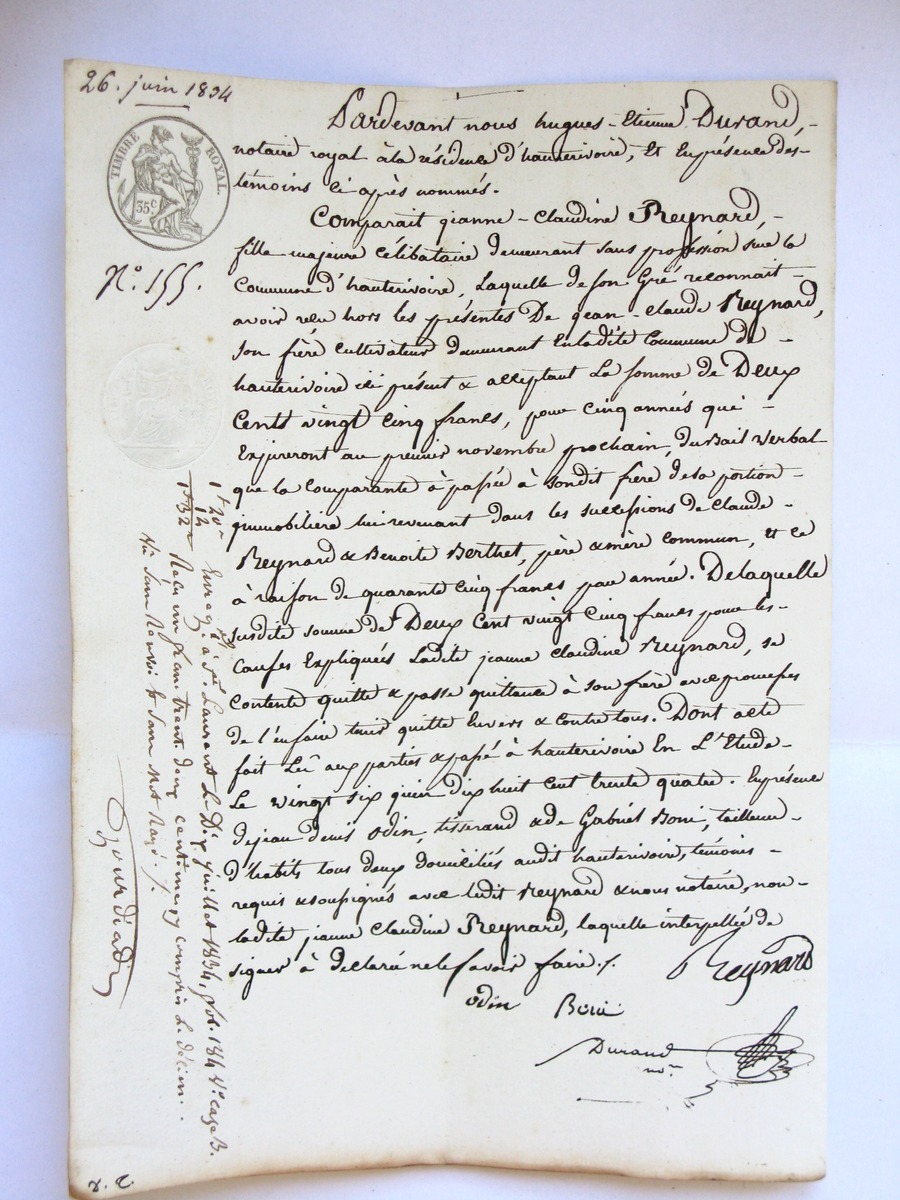 26. juin 1834
TIMBRE ROYAL.
35 c
N.º 155.
Pardevant nous hugues - Etienne Durand, -
notaire royal à la résidence d'hauterivoire, Et En présence des -
témoins ci après nommés.
Comparait jeanne - Claudine Reynard, -
fille majeure célibataire demeurant sans profession sur la
Commune d'hauterivoire, Laquelle de son Gré reconnait -
avoir reçu hors les présentes De jean - claude Reynard,
son frère cultivateur demeurant En ladite Commune de -
hauterivoire ici présent & acceptant La somme de Deux
Cents vingt cinq francs, pour cinq années qui -
Expireront au premier novembre prochain, du Bail verbal
que la comparante à passée à sondit frère de sa portion -
immobilière lui revenant dans les successions de Claude -
Reynard & Benoite Berthet, père & mère commun, et ce
à raison de quarante cinq francs par année. De laquelle
susdite somme de Deux Cent vingt cinq francs pour les -
Causes Expliquées Ladite jeanne claudine Reynard, se
contente quitte & passe quittance à son frère avec promesses
de l'en faire tenir quitte Envers & contre tous. Dont acte
fait Lu aux parties & passé à hauterivoire En L'Etude -
Le vingt six juin dix huit cent trente quatre. En présence
de jean denis Odin, tisserand & de Gabriel Boni, tailleur -
d'habits tous deux domiciliés audit hauterivoire, témoins -
requis & soussignés avec ledit Reynard & nous notaire, non -
ladite jeanne Claudine Reynard, laquelle interpellée de
signer à déclaré ne le savoir faire ./.
Reynard
odin Boni
Durand
no.re
1f 20c
12
1f 32c
Enreg. à St. Laurent Le Dix juillet 1834, fol. 184 Vo. case 3.
Reçu un franc trente deux centimes y compris le décime.
Ni sans Renvoi & sans mot Rayé ./.